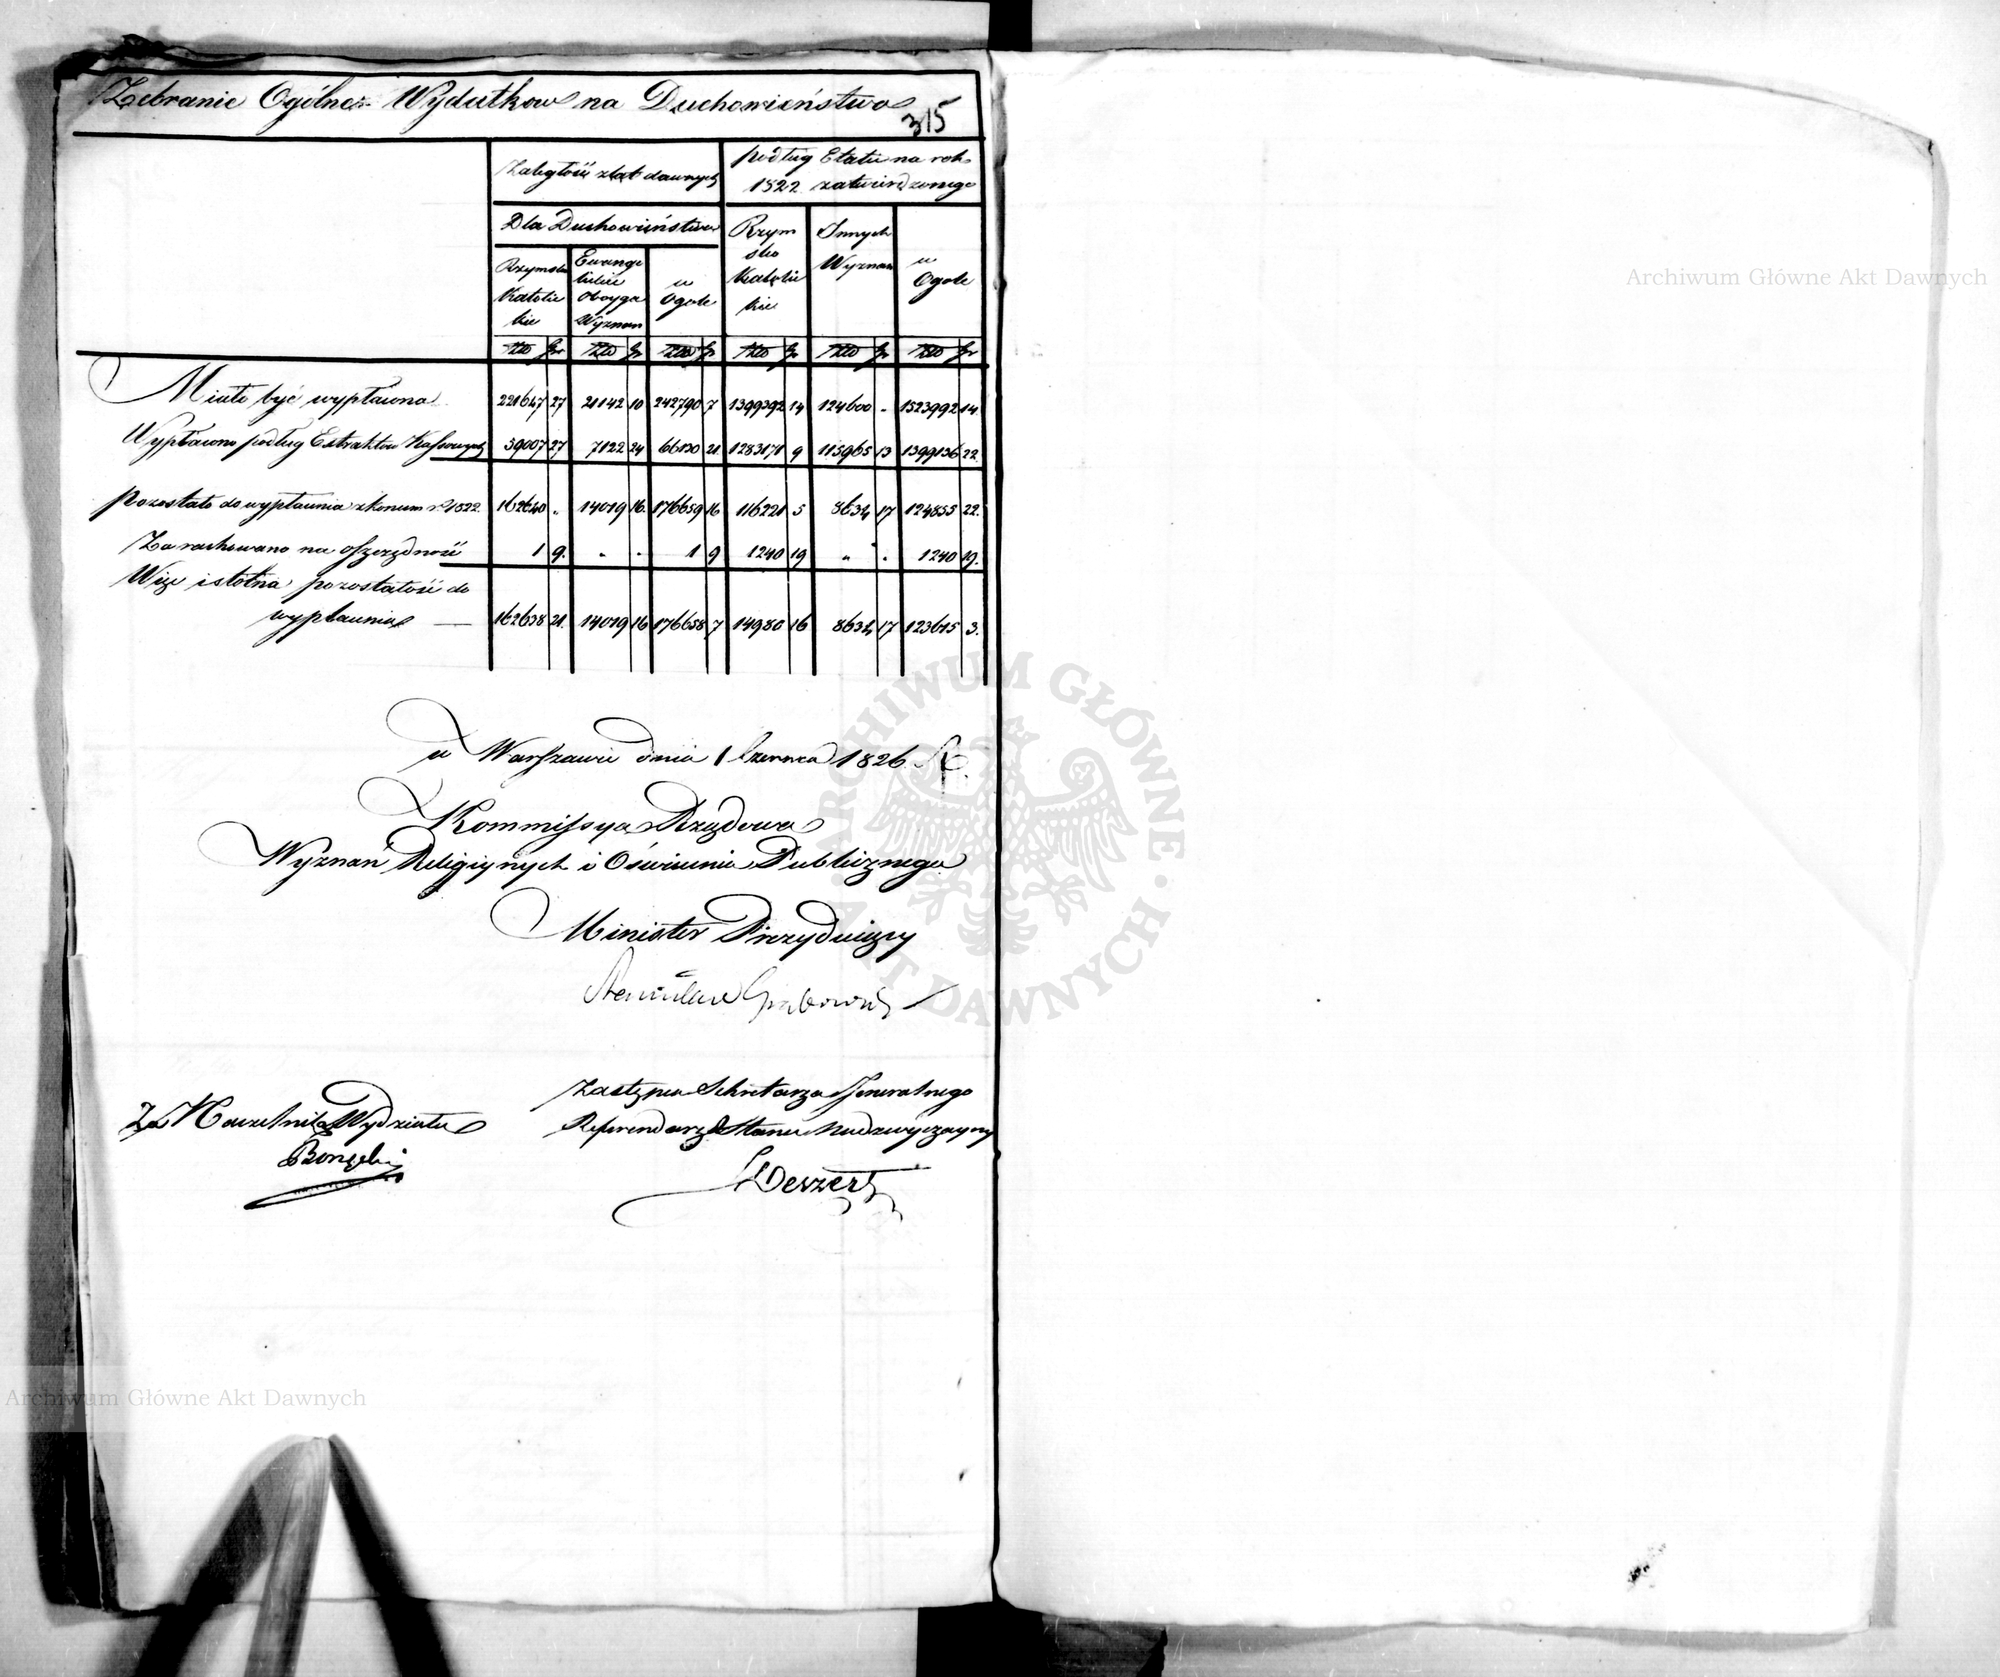 Zebranie Ogólne Wydatków na Duchowieństwo
315
Zaległość z lat dawnych
podług Etatu na rok
1822 zatwierdzonego
Dla Duchowieństwa
Rzymsko Katolickie
Ewangelickie Oboyga Wyznań
w Ogole
Rzymsko Katolickie
Innych Wyznań
w Ogole
Złp gr Złp gr Złp gr Złp gr Złp gr Złp gr
Miało być wypłacono 221647 27 21142 10 242790 7 1399392 14 124600 „ 1523992 14.
Wypłacono podług Extraktów Kassowych 59007 27 7122 24 66130 21 1283171 9 115965 13 1399136 22.
Pozostało do wypłacenia z końcem r. 1822. 162640 „ 14019 16. 176659 16 116221 5 8634 17 124855 22.
Zarachowano na oszczędność 1 9. „ . 1 9 1240 19 „ . 1240 19.
Więc istotna pozostałość do
wypłacenia 162638 21. 14019 16 176658 7 114980 16 8634 17 123615 3.
w Warszawie dnia 1 Czerwca 1826 R.
Kommissya Rządowa
Wyznań Religijnych i Oświecenia Publicznego
Minister Prezyduiący
Stanisław Grabowski
Zastępca Sekretarza Jeneralnego
Referendarz Stanu Nadzwyczayny
Za Naczelnika Wydziału
Archiwum Główne Akt Dawnych
Archiwum Główne Akt Dawnych
ARCHIWUM GŁÓWNE AKT DAWNYCH